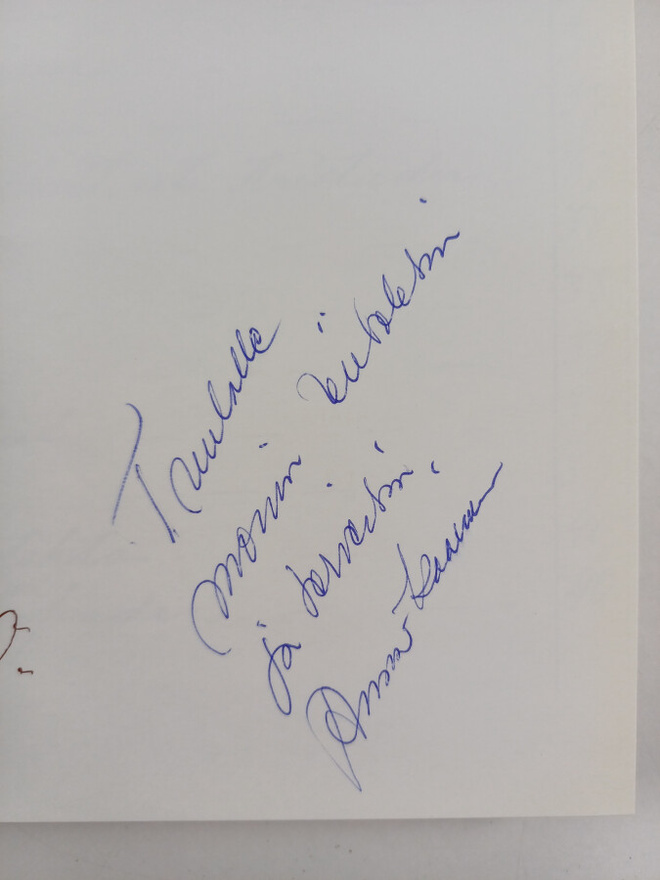 Tuulalle
monin kiitoksin
ja terveisin,
Anna